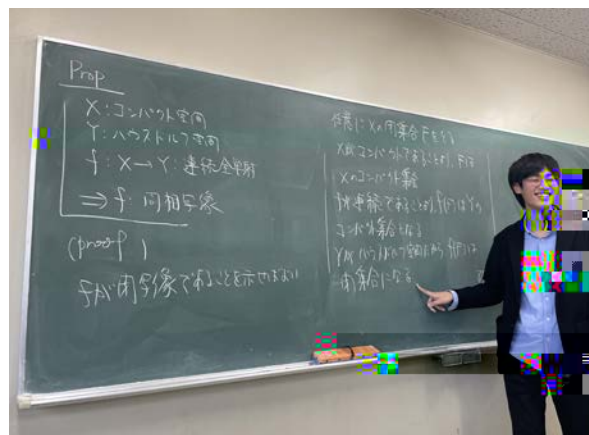 Prop
X:コンパクト空間
Y:ハウスドルフ空間
f:X→Y:連続全単射
⇒f:同相写像
(proof)
fが閉写像であることを示せばよい
任意にXの閉集合Fをとる
Xがコンパクトであることより、Fは
Xのコンパクト集合
fが連続であることより、f(F)はYの
コンパクト集合となる
Yがハウスドルフ空間だから、f(F)は
閉集合になる